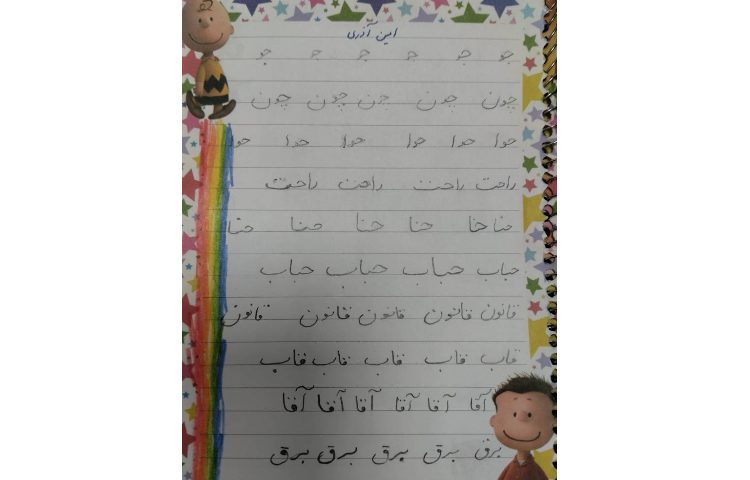 امین آذری
جو جو جو جو جو جو
چون چون چون چون چون
حوا حوا حوا حوا حوا حوا
راحت راحت راحت راحت
حنا حنا حنا حنا حنا حنا
حباب حباب حباب حباب
قانون قانون قانون قانون قانون
قاب قاب قاب قاب قاب
آقا آقا آقا آقا آقا آقا
برق برق برق برق برق